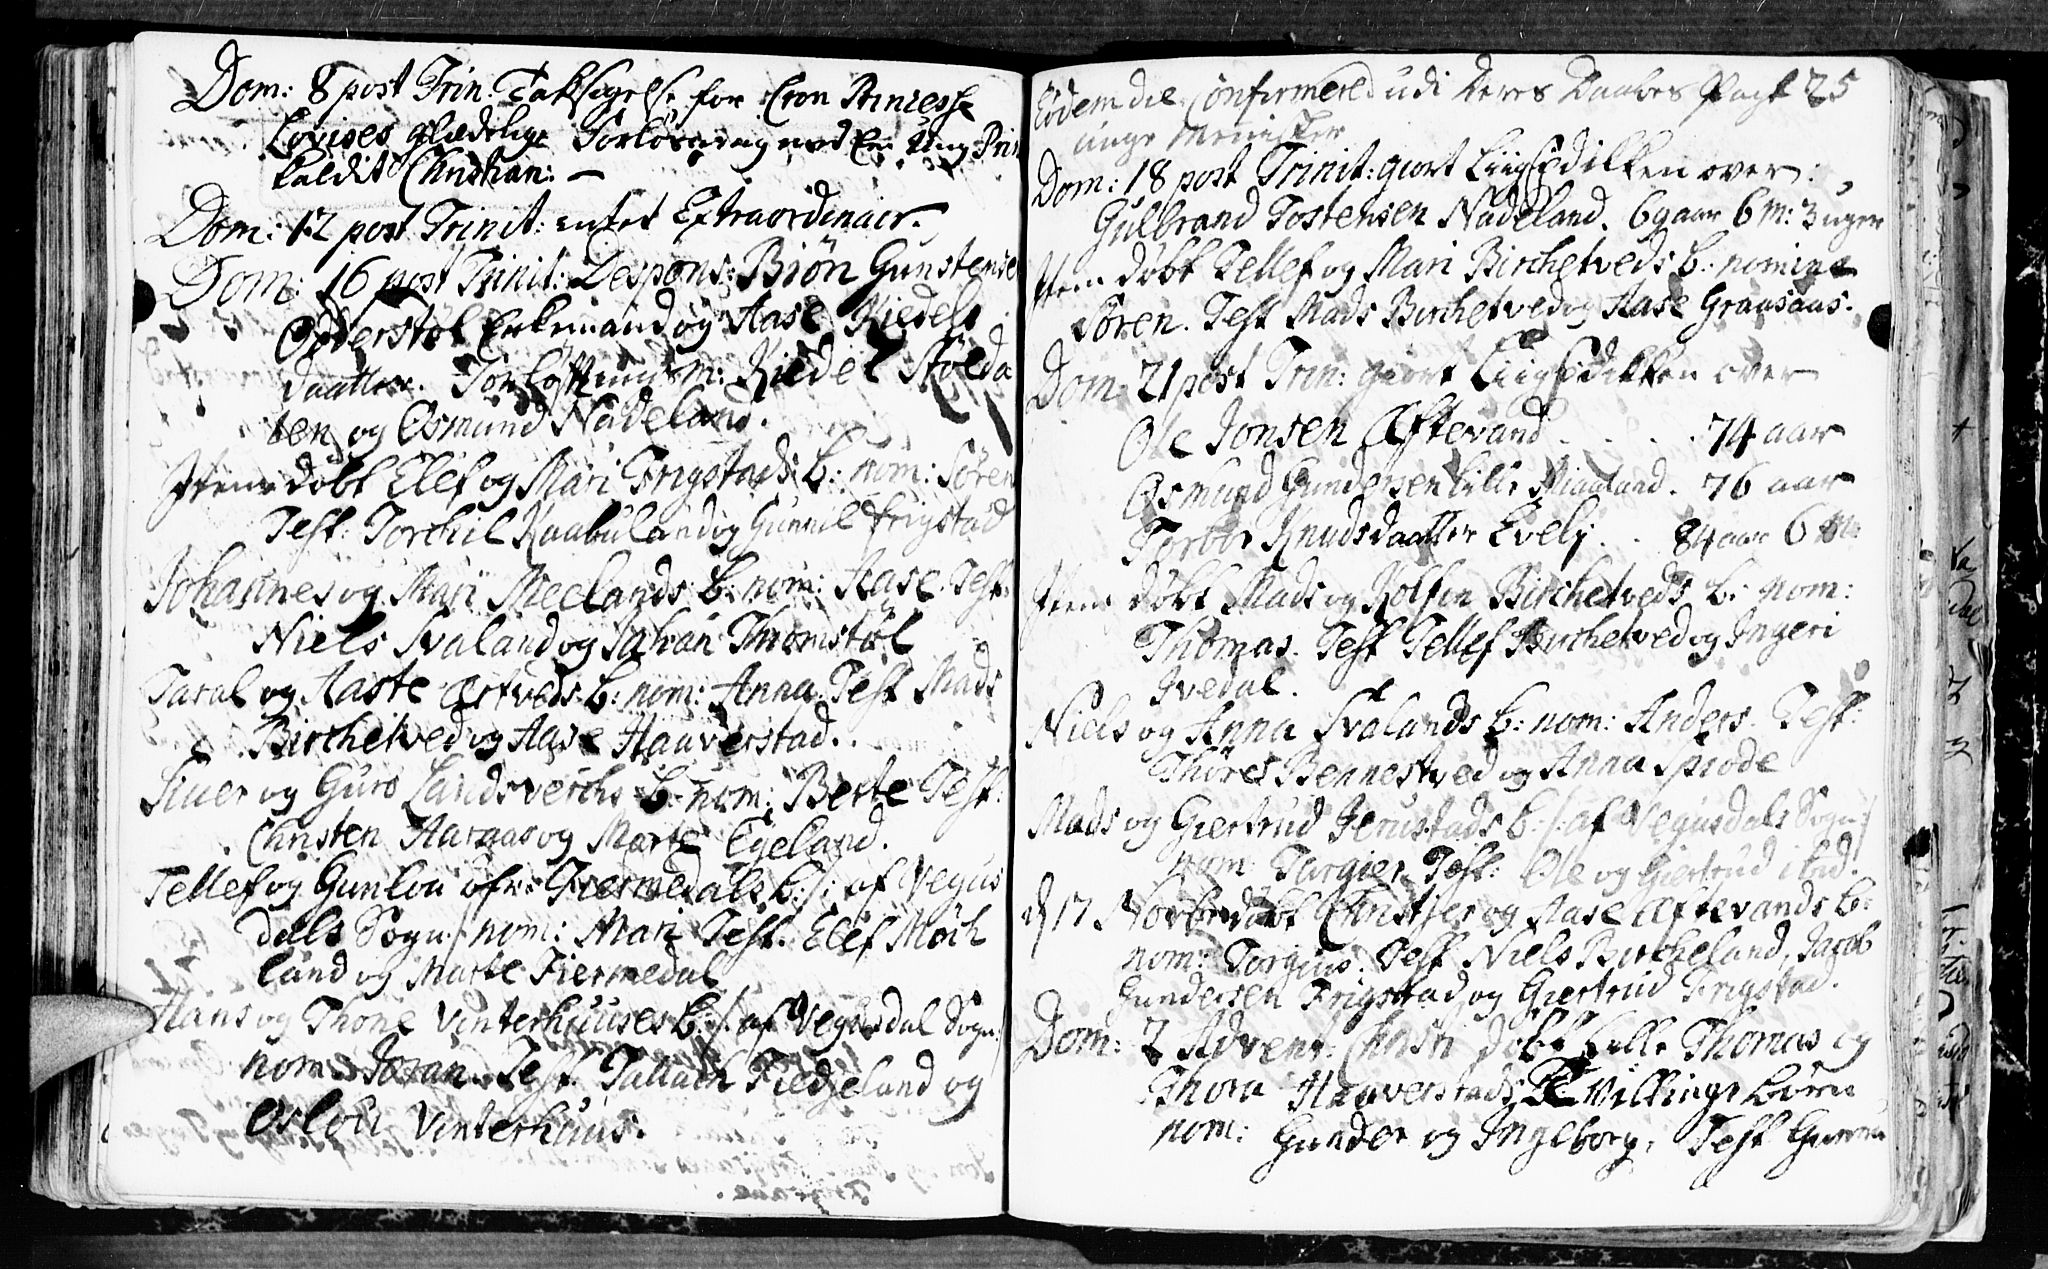 Dom: 8 post Trin. Taksigelse for Cron Princesse
Lovises glædelige Forløsning med En Ung Prin
kaldit Christian. —
Dom: 12 post Trinit: intet Extraordinair.
Dom: 16 post Trinit: Despons: Biön Gunstense
Odderstöl Enkemand og Aase Kiedels
daatter. Forlofftnings m: Kiedel Stöeda
len og Osmund Nadeland.
Item döbt Elef og Mari Frigstads b: nom: Sören
Test: Torchil Kaabuland og Gunnil Frigstad
Johannes og Mari Meelands b: nom: Aase. Test:
Niels Svaland og Johan Thromstöl
Taral og Aaste Ærtveds b: nom: Anna. Test Mads
Birchetved og Aase Haaverstad.
Siuer og Guro Landsverchs b: nom: Berte Test:
Christen Aaraas og Marte Egeland.
Tellef og Gunlou öfre Fiermedals b: /: af Vegus
dals Sogn:/ nom: Mari Test. Elef Möch
land og Marte Fiermedal
Hans og Thone Vinterhuuses b: /: af Vegusdal Sogn:/
nom: Joran. Test: Tallach Fiedgeland og
Oslou Vinterhuus.
Eodem die Confirmered udi deres Daabes Pagt 25
unge Menisker
Dom: 18 post Trinit: giort Liigprædikken over:
Gulbrand Tostensen Nadeland. 69 aar 6 m: 3 uger
Item döbt Tellef og Mari Birchetveds b: nomine
Sören. Test Mads Birchetved og Aase Graasaas.
Dom: 21 post Trin: giort Liigprædikken over
Ole Jonsen Æftevand . . . . 74 aar
Osmund Gundersen lille Miaaland. 76 aar
Torbor Knudsdaatter Evelj . . 84 aar 6 m:
Item döbt Mads og Rolfin Birchetveds b: nom:
Thomas. Test Tellef Birchetved og Ingeri
Ivedal.
Niels og Anna Svalands b: nom: Anders. Test:
Thöres Bennestved og Anna Spröde
Mads og Giertrud Jerustads b: /: af Vegusdals Sogn:/
nom: Targier. Test: Ole og Giertrud ibid.
d 17 Novbr döbt Christpher og Aase Æftevands b:
nom: Torgius. Test Niels Bircheland, Jacob
Gundersen Frigstad og Giertrud Frigstad.
Dom: 2 Advent: Christi döbt lille Thomas og
Thora Haaverstads Tvillinge börn
nom: Gunder og Ingeborg. Test